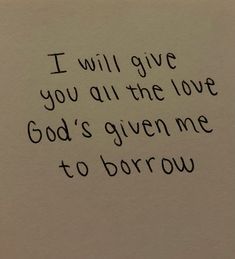 I will give
you all the love
God's given me
to borrow